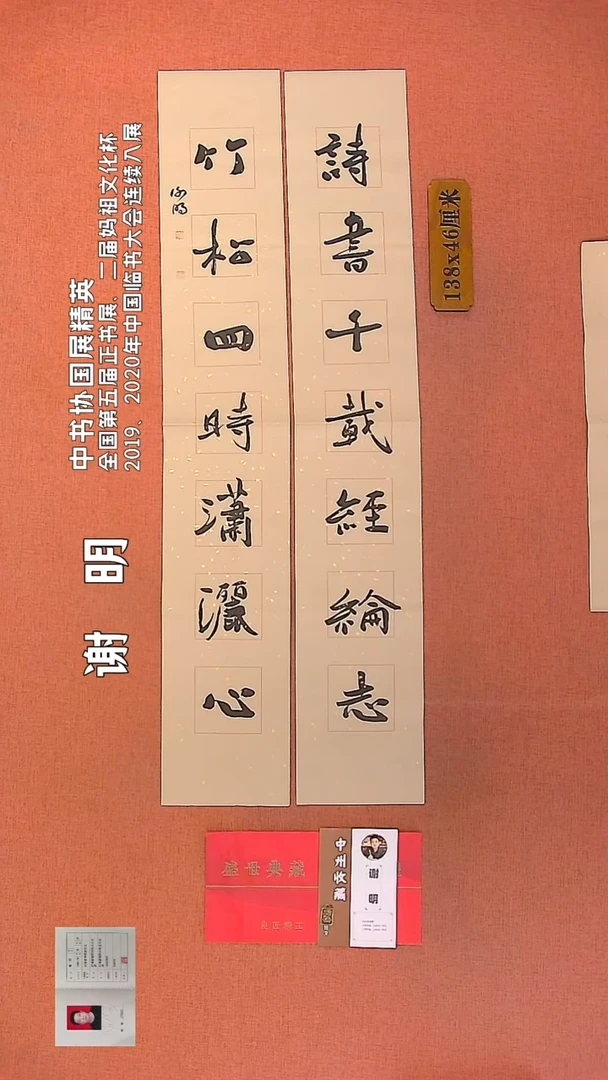 詩書千載經綸志
竹松四時瀟灑心
谢明
138x46厘米
中书协国展精英
全国第五届正书展、二届妈祖文化杯
2019、2020年中国临书大会连续入展
谢 明
盛世典藏
中州收藏